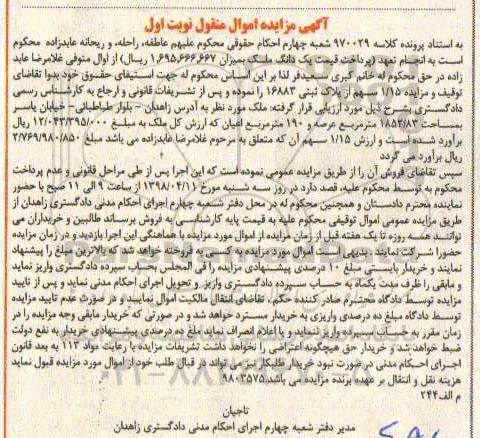 آگهی مزایده اموال منقول نوبت اول
به استناد پرونده کلاسه ۹۷۰۰۲۹ شعبه چهارم احکام حقوقی محکوم علیهم عاطفه، راحله، و ریحانه عابدزاده محکوم
است به انجام تعهد (پرداخت قیمت یک دانگ ملک بمیزان ۱,۶۹۵,۶۶۶,۶۶۷ ریال) از اوال متوفی غلامرضا عابد
زاده در حق محکوم له خانم کبری سعیدفر لذا بر این اساس محکوم له جهت استیفای حقوق خود بدوا تقاضای
توقیف و مزایده ۱/۱۵ سهم از پلاک ثبتی ۱۶۸۸۳ را نموده و پس از تشریفات قانونی و ارجاع به کارشناس رسمی
دادگستری بشرح ذیل مورد ارزیابی قرار گرفته: ملک مورد نظر به آدرس زاهدان - بلوار طباطبائی- خیابان یاسر
بمساحت ۱۸۵۲/۸۳ مترمربع عرصه و ۱۹۰ مترمربع اعیان که ارزش کل ملک به مبلغ ۱۲/۰۴۳/۳۹۵/۰۰۰ ریال
برآورد شده است و ارزش ۱/۱۵ سهم آن که متعلق به مرحوم غلامرضا عابدزاده می باشد مبلغ ۲/۷۶۹/۹۸۰/۸۵۰
ریال برآورد می گردد
سپس تقاضای فروش آن را از طریق مزایده عمومی نموده است که این اجرا پس از طی مراحل قانونی و عدم پرداخت
محکوم به توسط محکوم علیه، قصد دارد در روز سه شنبه مورخ ۱۳۹۸/۰۴/۱۱ از ساعت ۹ الی ۱۱ صبح با حضور
نماینده محترم دادستان و همچنین محکوم له در محل دفتر شعبه چهارم اجرای احکام مدنی دادگستری زاهدان از
طریق مزایده عمومی اموال توقیفی محکوم علیه به قیمت پایه کارشناسی به فروش برساند طالبین و خریداران می
توانند همه روزه تا یک هفته قبل از زمان مزایده از اموال مورد مزایده با هماهنگی این اجرا بازدید و در زمان مزایده
حضورا شرکت نمایند بدیهی است اموال مورد مزایده به کسی به فروخته خواهد شد که بالاترین مبلغ را پیشنهاد
نمایند و خریدار بایستی مبلغ ۱۰ درصدی پیشنهادی مزایده را فی المجلس بحساب سپرده دادگستری واریز نماید
و مابقی را ظرف مدت یکماه به حساب سپرده دادگستری واریز و تحویل اجرای احکام مدنی نماید و پس از تایید
مزایده توسط دادگاه محترم صادر کننده حکم، تقاضای انتقال مالکیت اموال نمایید و در صورت عدم تایید مزایده
توسط دادگاه مبلغ ده درصدی واریزی به خریدار مسترد خواهد شد و در صورتی که خریدار مابقی وجه مزایده را در
زمان مقرر به حساب سپرده واریز ننماید و یا اعلام انصراف نماید مبلغ ده درصدی پیشنهادی خریدار به نفع دولت
ضبط خواهد شد و خریدار حق هیچگونه اعتراضی را نخواهد داشت تشریفات مزایده با رعایت مواد ۱۱۳ به بعد قانون
اجرای احکام مدنی در صورت نبود خریدار طلبکار می تواند در قبال طلب خود از اموال مورد مزایده قبول نماید
هزینه نقل و انتقال بر عهده برنده مزایده می باشد ۹۸۰۳۵۷۵
م الف۲۴۴
تاجیان
مدیر دفتر شعبه چهارم اجرای احکام مدنی دادگستری زاهدان